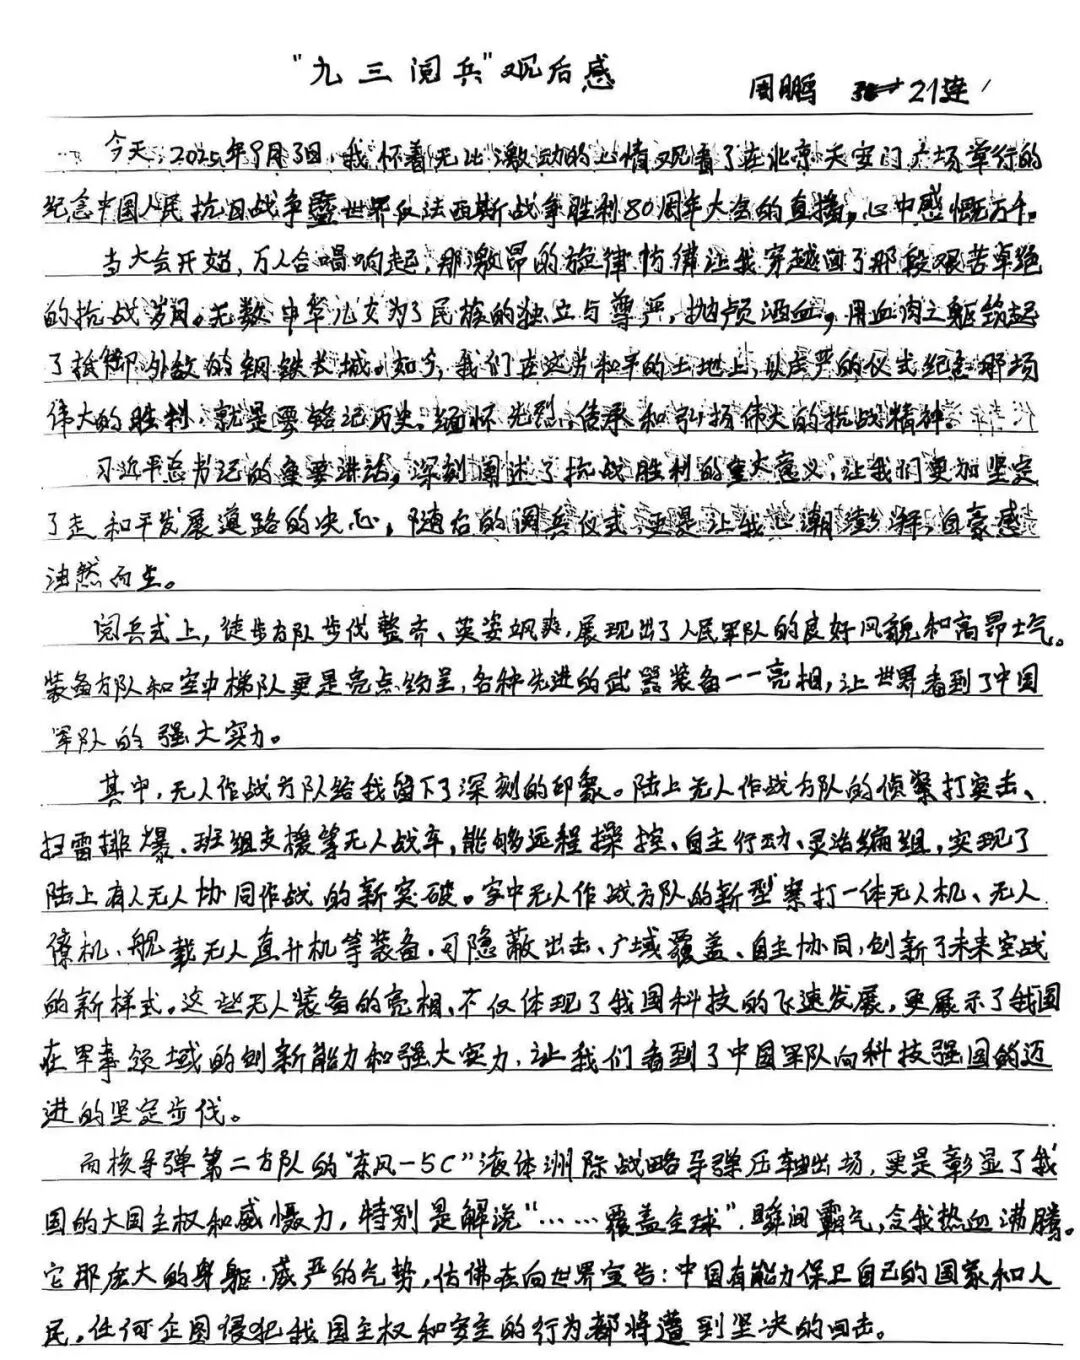 “九三阅兵”观后感
周鹏 21连
今天,2025年9月3日,我怀着无比激动的心情观看了在北京天安门广场举行的
纪念中国人民抗日战争暨世界反法西斯战争胜利80周年大会的直播,心中感慨万千。
当大会开始,万人合唱响起,那激昂的旋律仿佛让我穿越回了那段艰苦卓绝
的抗战岁月。无数中华儿女为了民族的独立与尊严,抛颅洒血,用血肉之躯筑起
了抵御外敌的钢铁长城。如今,我们在这片和平的土地上,以庄严的仪式纪念那场
伟大的胜利,就是要铭记历史、缅怀先烈、传承和弘扬伟大的抗战精神。
习近平总书记的重要讲话,深刻阐述了抗战胜利的重大意义,让我们更加坚定
了走和平发展道路的决心,随后的阅兵仪式,更是让我心潮澎湃,自豪感
油然而生。
阅兵式上,徒步方队步伐整齐、英姿飒爽,展现出了人民军队的良好风貌和高昂士气。
装备方队和空中梯队更是亮点纷呈,各种先进的武器装备一一亮相,让世界看到了中国
军队的强大实力。
其中,无人作战方队给我留下了深刻的印象。陆上无人作战方队的侦察打突击、
扫雷排爆、班组支援等无人战车,能够远程操控、自主行动、灵活编组,实现了
陆上有人无人协同作战的新突破。空中无人作战方队的新型察打一体无人机、无人
僚机、舰载无人直升机等装备,可隐蔽出击、广域覆盖、自主协同,创新了未来空战
的新样式。这些无人装备的亮相,不仅体现了我国科技的飞速发展,更展示了我国
在军事领域的创新能力和强大实力,让我们看到了中国军队向科技强国的迈
进的坚定步伐。
而核导弹第二方队的“东风-5C”液体洲际战略导弹压轴出场,更是彰显了我
国的大国主权和威慑力,特别是解说“……覆盖全球”,瞬间霸气,令我热血沸腾。
它那庞大的身躯,威严的气势,仿佛在向世界宣告:中国有能力保卫自己的国家和人
民,任何企图侵犯我国主权和安全的行为都将遭到坚决的回击。